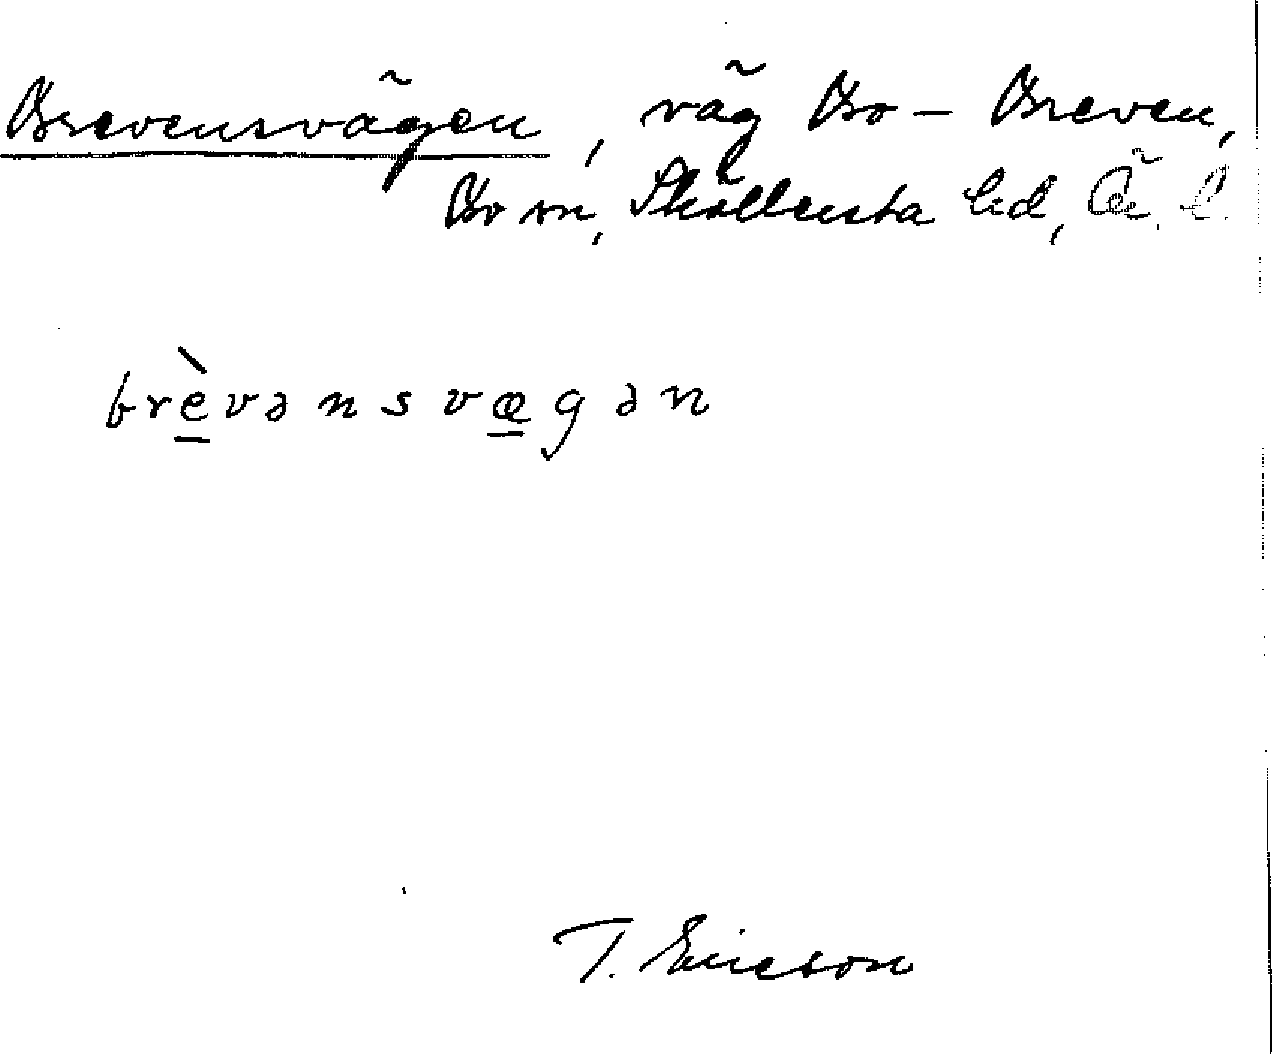 Brevensvägen, väg Bo – Breven,
Bo sn, Sköllersta hd, Ö. l.
brèvənsvægən
T. Ericson